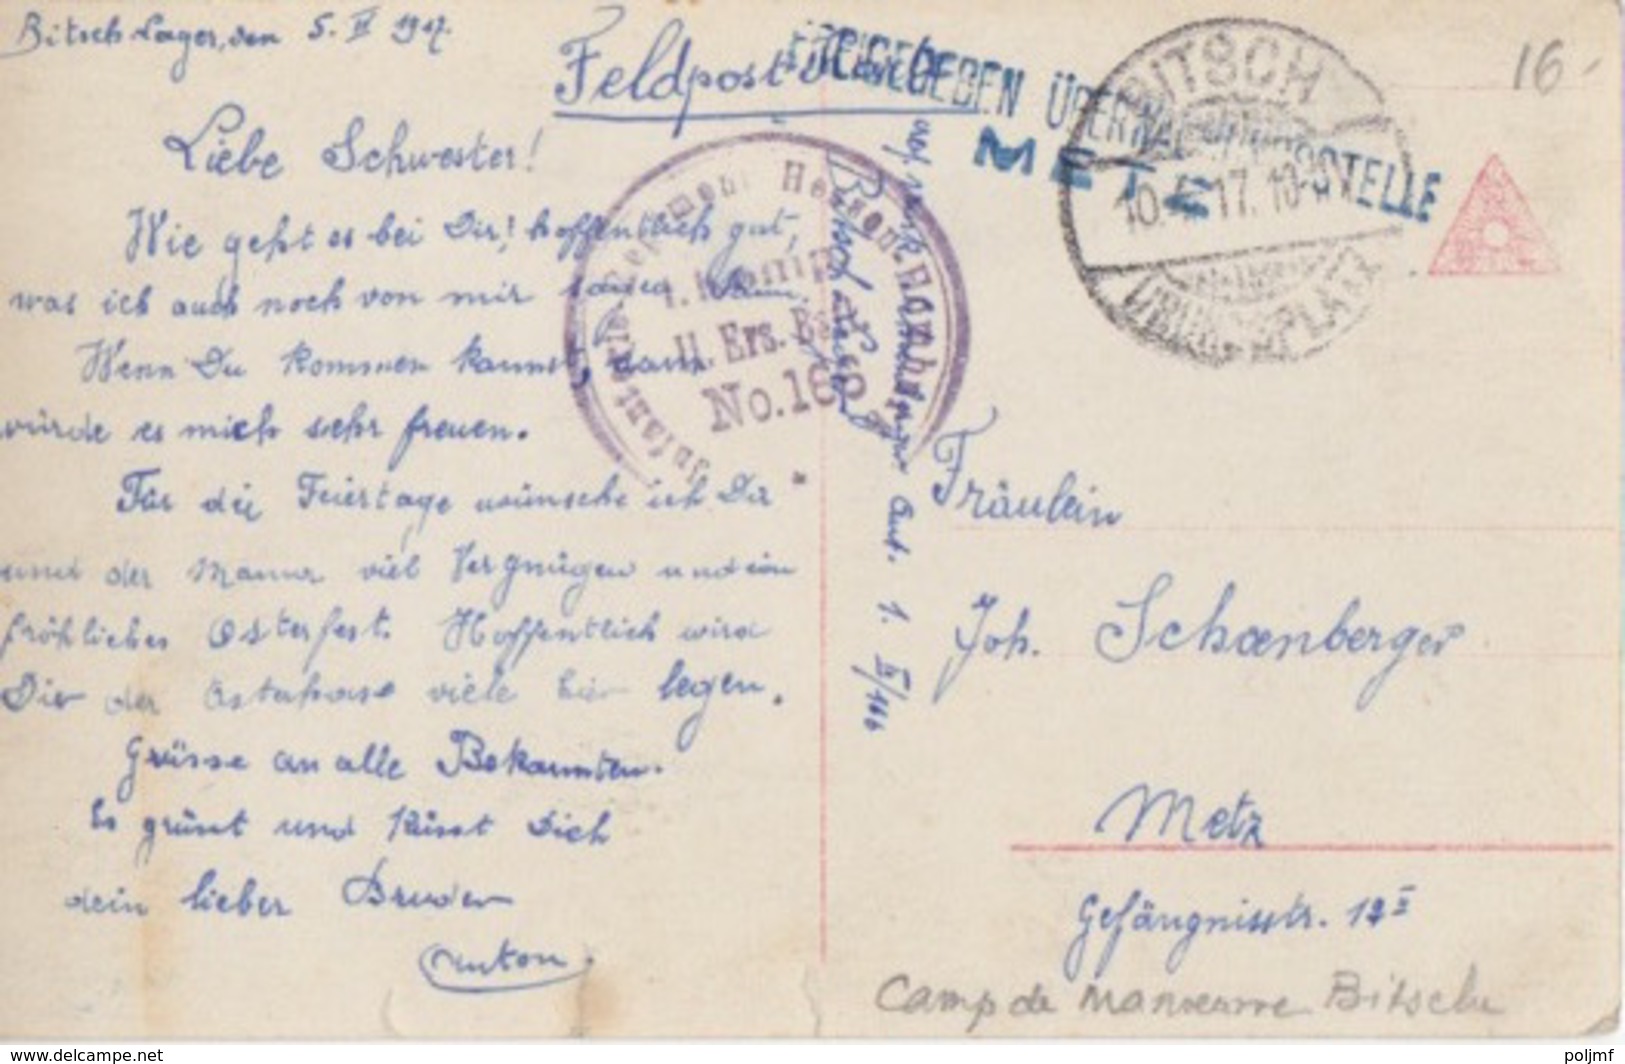 Bitsch Lager, den 5. IV 1917.
Feldpost
FREIGEGEBEN ÜBERWACHUNGSSTELLE
METZ
BITSCH
10.4.17. 10-
ÜBUNGSPLATZ
16-
Liebe Schwester!
Wie geht es bei Dir! hoffentlich gut,
was ich auch noch von mir sagen kann.
Wenn Du kommen kannst, dann
würde es mich sehr freuen.
Für die Feiertage wünsche ich Dir
und der Mama viel Vergnügen und ein
fröhliches Osterfest. Hoffentlich wird
Dir der Osterhase viele Eier legen.
Grüsse an alle Bekannten.
Es grüsst und küsst Dich
dein lieber Bruder
Anton.
Infanterie Regiment Hessen Homburg
1. Komp.
II. Ers. Bat.
No. 166
Schoenberger Ant. 1. II/166
Bitsch Lager
Fräulein
Joh. Schoenberger
Metz
Gefängnisstr. 12 II
Camp de manoeuvre Bitsche
https://www.delcampe.net
poljmf